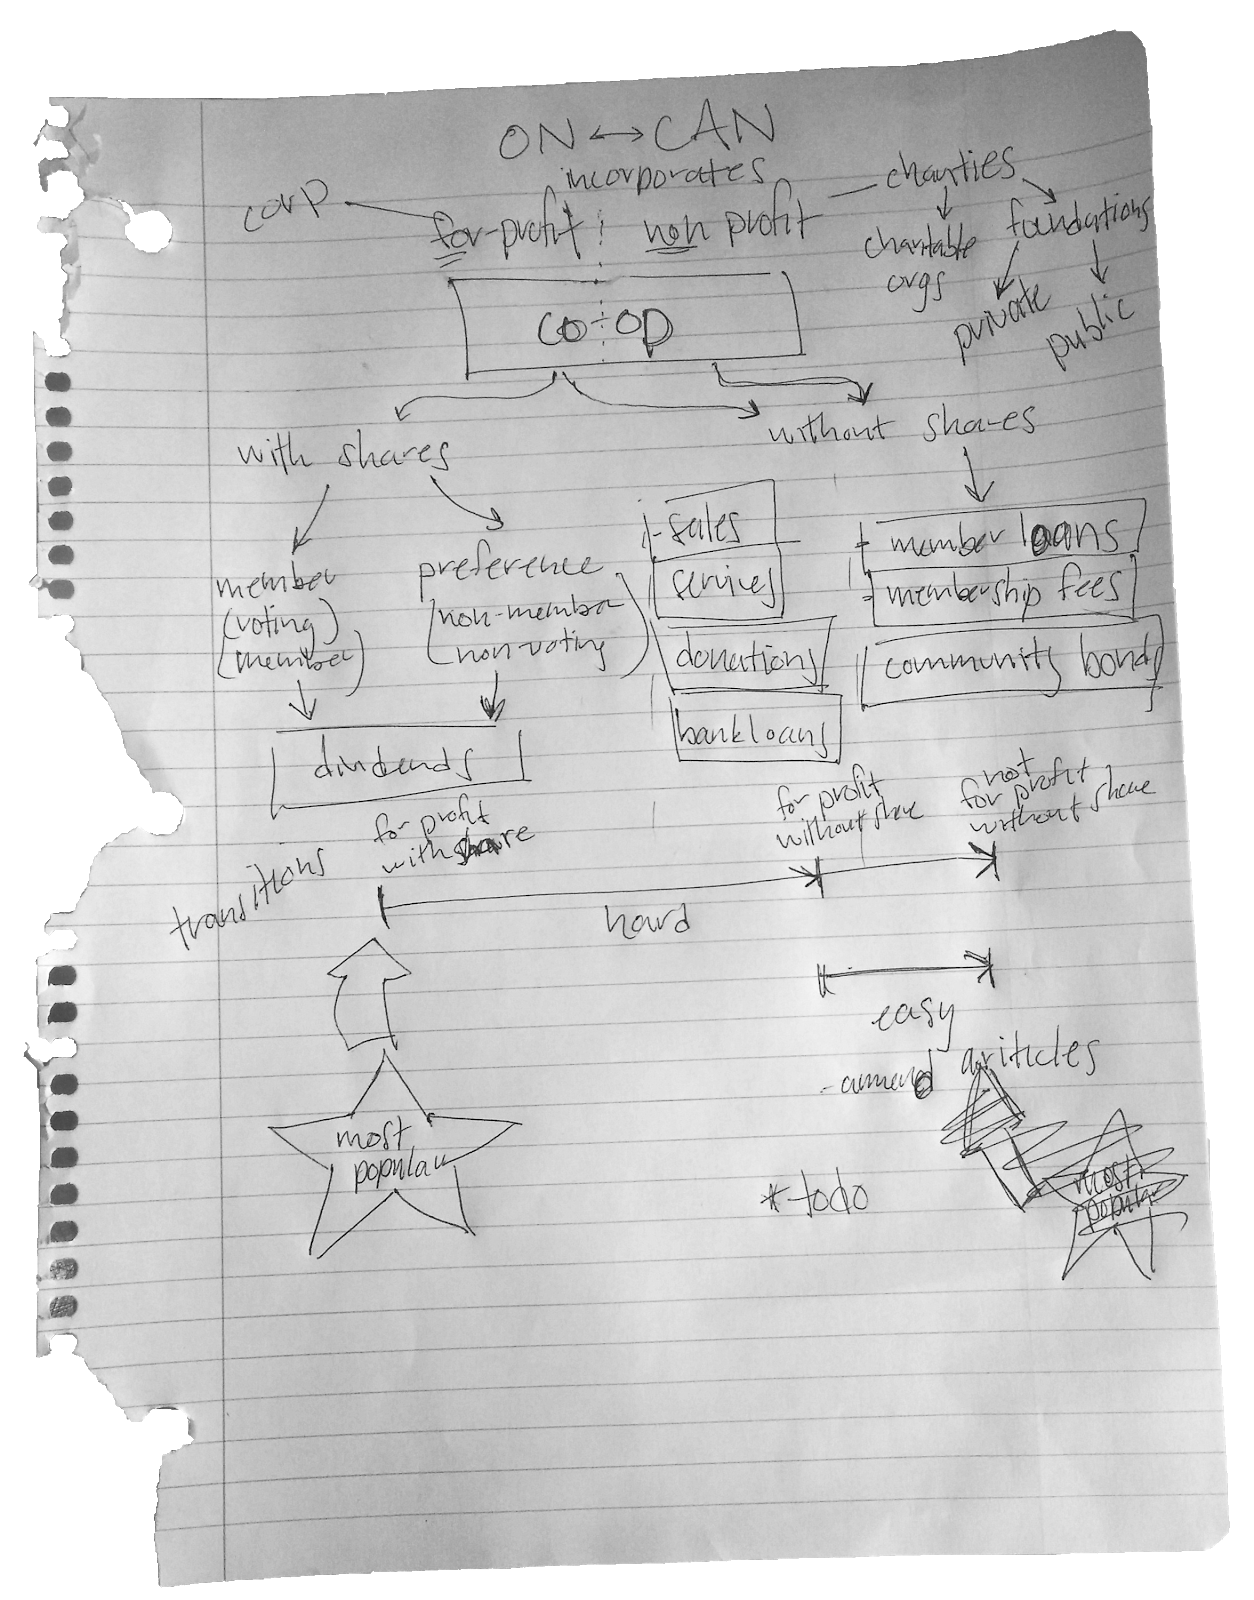 ON ↔ CAN
incorporates
corp
for-profit
non profit
charities
charitable
orgs
foundations
private
public
co-op
with shares
without shares
member
(voting)
(member)
preference
(non-member
non-voting)
dividends
- sales
services
donations
bank loans
- member loans
- membership fees
community bonds
transitions
for profit
with share
for profit
without share
not
for profit
without share
hard
easy
- amend ariticles
most
popular
* todo
most
popular